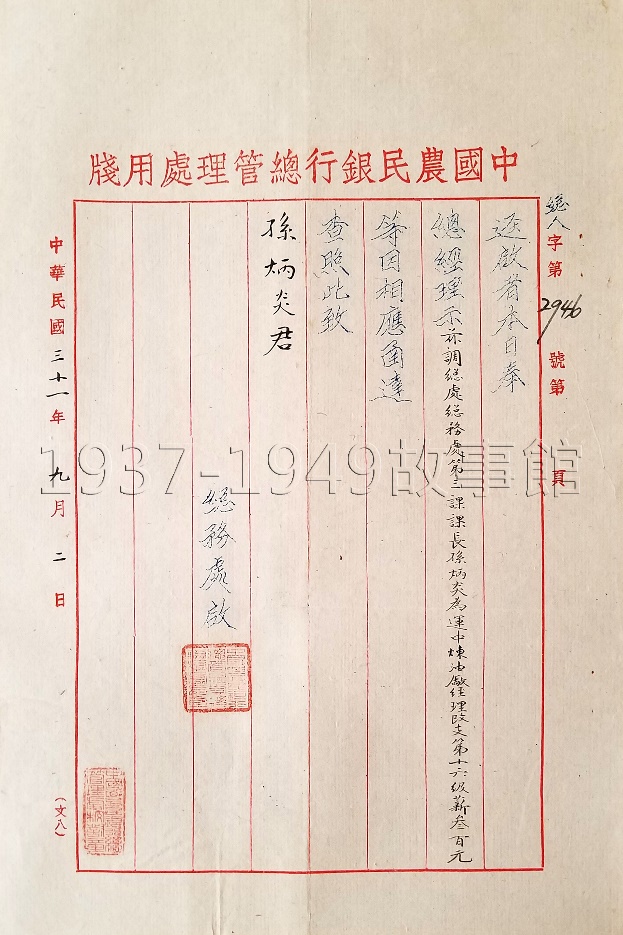 中國農民銀行總管理處用牋
總人字第2946號第 頁
逕啟者本日奉
總經理示茲調總處總務處第三課課長孫炳炎為運中煉油廠經理改支第十六級薪叁百元
等因相應函達
查照此致
孫炳炎君
總務處啟
中華民國三十一年九月二日
(文八)
1937-1949故事館